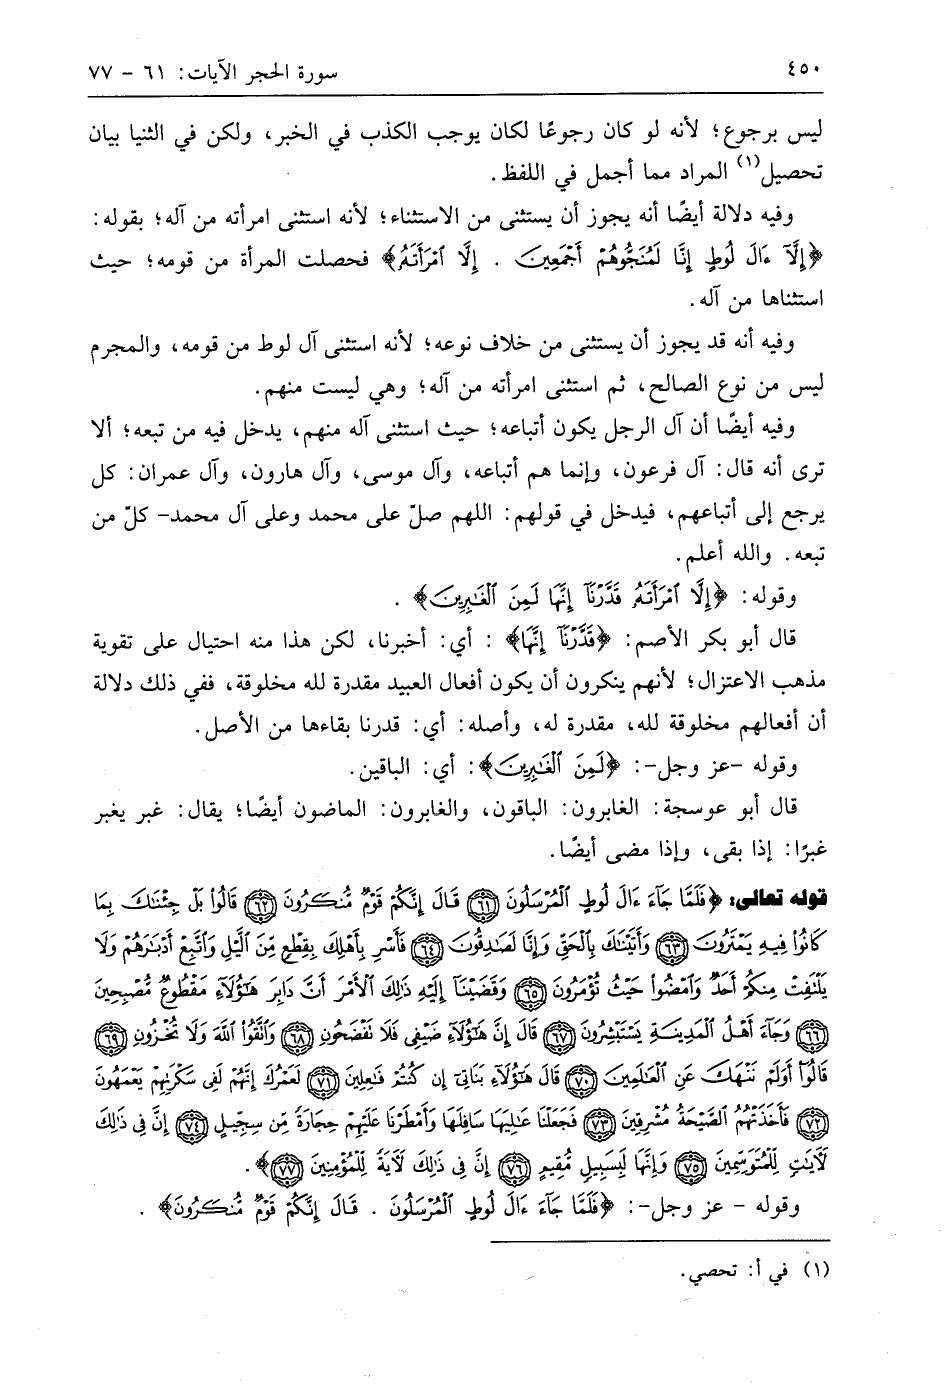 ٤٥٠ سورة الحجر الآيات: ٦١ - ٧٧
ليس برجوع؛ لأنه لو كان رجوعًا لكان يوجب الكذب في الخبر، ولكن في الثنيا بيان
تحصيل(١) المراد مما أجمل في اللفظ.
وفيه دلالة أيضًا أنه يجوز أن يستثنى من الاستثناء؛ لأنه استثنى امرأته من آله؛ بقوله:
﴿إِلَّآ ءَالَ لُوطٍ إِنَّا لَمُنَجُّوهُمْ أَجْمَعِينَ . إِلَّا ٱمْرَأَتَهُۥ﴾ فحصلت المرأة من قومه؛ حيث
استثناها من آله.
وفيه أنه قد يجوز أن يستثنى من خلاف نوعه؛ لأنه استثنى آل لوط من قومه، والمجرم
ليس من نوع الصالح، ثم استثنى امرأته من آله؛ وهي ليست منهم.
وفيه أيضًا أن آل الرجل يكون أتباعه؛ حيث استثنى آله منهم، يدخل فيه من تبعه؛ ألا
ترى أنه قال: آل فرعون، وإنما هم أتباعه، وآل موسى، وآل هارون، وآل عمران: كل
يرجع إلى أتباعهم، فيدخل في قولهم: اللهم صلّ على محمد وعلى آل محمد- كلّ من
تبعه. والله أعلم.
وقوله: ﴿إِلَّا ٱمْرَأَتَهُۥ قَدَّرْنَآ إِنَّهَا لَمِنَ ٱلْغَٰبِرِينَ﴾ .
قال أبو بكر الأصم: ﴿قَدَّرْنَآ إِنَّهَا﴾ : أي: أخبرنا، لكن هذا منه احتيال على تقوية
مذهب الاعتزال؛ لأنهم ينكرون أن يكون أفعال العبيد مقدرة لله مخلوقة، ففي ذلك دلالة
أن أفعالهم مخلوقة لله، مقدرة له، وأصله: أي: قدرنا بقاءها من الأصل.
وقوله -عز وجل-: ﴿لَمِنَ ٱلْغَٰبِرِينَ﴾: أي: الباقين.
قال أبو عوسجة: الغابرون: الباقون، والغابرون: الماضون أيضًا؛ يقال: غبر يغبر
غبرًا: إذا بقى، وإذا مضى أيضًا.
قوله تعالى: ﴿فَلَمَّا جَآءَ ءَالَ لُوطٍ ٱلْمُرْسَلُونَ ٦١ قَالَ إِنَّكُمْ قَوْمٌ مُّنكَرُونَ ٦٢ قَالُوا۟ بَلْ جِئْنَٰكَ بِمَا
كَانُوا۟ فِيهِ يَمْتَرُونَ ٦٣ وَأَتَيْنَٰكَ بِٱلْحَقِّ وَإِنَّا لَصَٰدِقُونَ ٦٤ فَأَسْرِ بِأَهْلِكَ بِقِطْعٍ مِّنَ ٱلَّيْلِ وَٱتَّبِعْ أَدْبَٰرَهُمْ وَلَا
يَلْتَفِتْ مِنكُمْ أَحَدٌ وَٱمْضُوا۟ حَيْثُ تُؤْمَرُونَ ٦٥ وَقَضَيْنَآ إِلَيْهِ ذَٰلِكَ ٱلْأَمْرَ أَنَّ دَابِرَ هَٰٓؤُلَآءِ مَقْطُوعٌ مُّصْبِحِينَ
٦٦ وَجَآءَ أَهْلُ ٱلْمَدِينَةِ يَسْتَبْشِرُونَ ٦٧ قَالَ إِنَّ هَٰٓؤُلَآءِ ضَيْفِى فَلَا تَفْضَحُونِ ٦٨ وَٱتَّقُوا۟ ٱللَّهَ وَلَا تُخْزُونِ ٦٩
قَالُوٓا۟ أَوَلَمْ نَنْهَكَ عَنِ ٱلْعَٰلَمِينَ ٧٠ قَالَ هَٰٓؤُلَآءِ بَنَاتِىٓ إِن كُنتُمْ فَٰعِلِينَ ٧١ لَعَمْرُكَ إِنَّهُمْ لَفِى سَكْرَتِهِمْ يَعْمَهُونَ
٧٢ فَأَخَذَتْهُمُ ٱلصَّيْحَةُ مُشْرِقِينَ ٧٣ فَجَعَلْنَا عَٰلِيَهَا سَافِلَهَا وَأَمْطَرْنَا عَلَيْهِمْ حِجَارَةً مِّن سِجِّيلٍ ٧٤ إِنَّ فِى ذَٰلِكَ
لَءَايَٰتٍ لِّلْمُتَوَسِّمِينَ ٧٥ وَإِنَّهَا لَبِسَبِيلٍ مُّقِيمٍ ٧٦ إِنَّ فِى ذَٰلِكَ لَءَايَةً لِّلْمُؤْمِنِينَ ٧٧﴾ .
وقوله - عز وجل-: ﴿فَلَمَّا جَآءَ ءَالَ لُوطٍ ٱلْمُرْسَلُونَ . قَالَ إِنَّكُمْ قَوْمٌ مُّنكَرُونَ﴾ .
(١) في أ: تحصي.